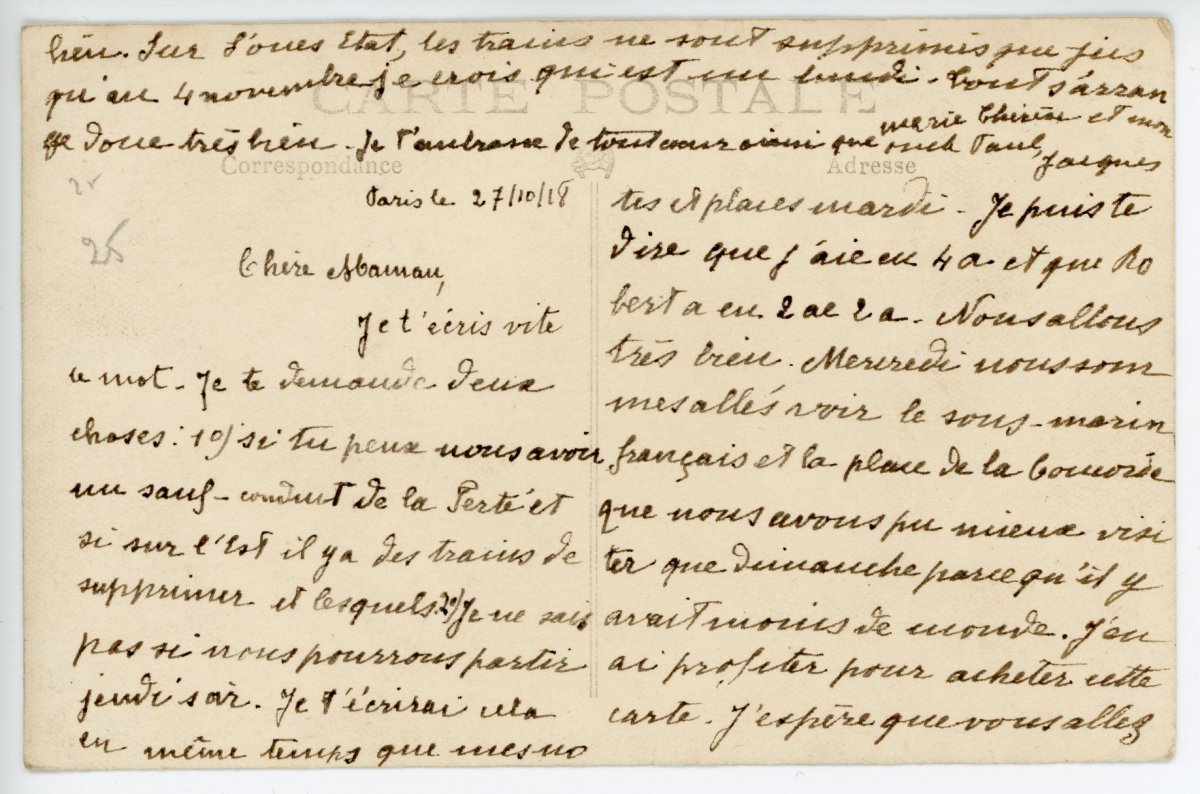 bien. Sur l'oues Etat, les trains ne sont supprimés que jus
qu'au 4 novembre je crois qui est un lundi. Tout s'arran
ge donc très bien. Je t'embrasse de tout cœur ainsi que marie Thérèse et mon
oncle Paul, Jacques
CARTE POSTALE
Correspondance
Adresse
25
Paris le 27/10/18
Chère Maman,
Je t'écris vite
ce mot. Je te demande deux
choses: 1o) si tu peux nous avoir
un sauf-conduit de la Ferté et
si sur l'Est il y a des trains de
supprimer et lesquels. 2o) Je ne sais
pas si nous pourrons partir
jeudi soir. Je t'écrirai cela
en même temps que mes no
tes et places mardi. Je puis te
dire que j'aie eu 4 a et que Ro
bert a eu 2 ae 2 a. Nous allons
très bien. Mercredi nous som
mes allés voir le sous-marin
français et la place de la Concorde
que nous avons pu mieux visi
ter que dimanche parce qu'il y
avait moins de monde. J'en
ai profiter pour acheter cette
carte. J'espère que vous allez